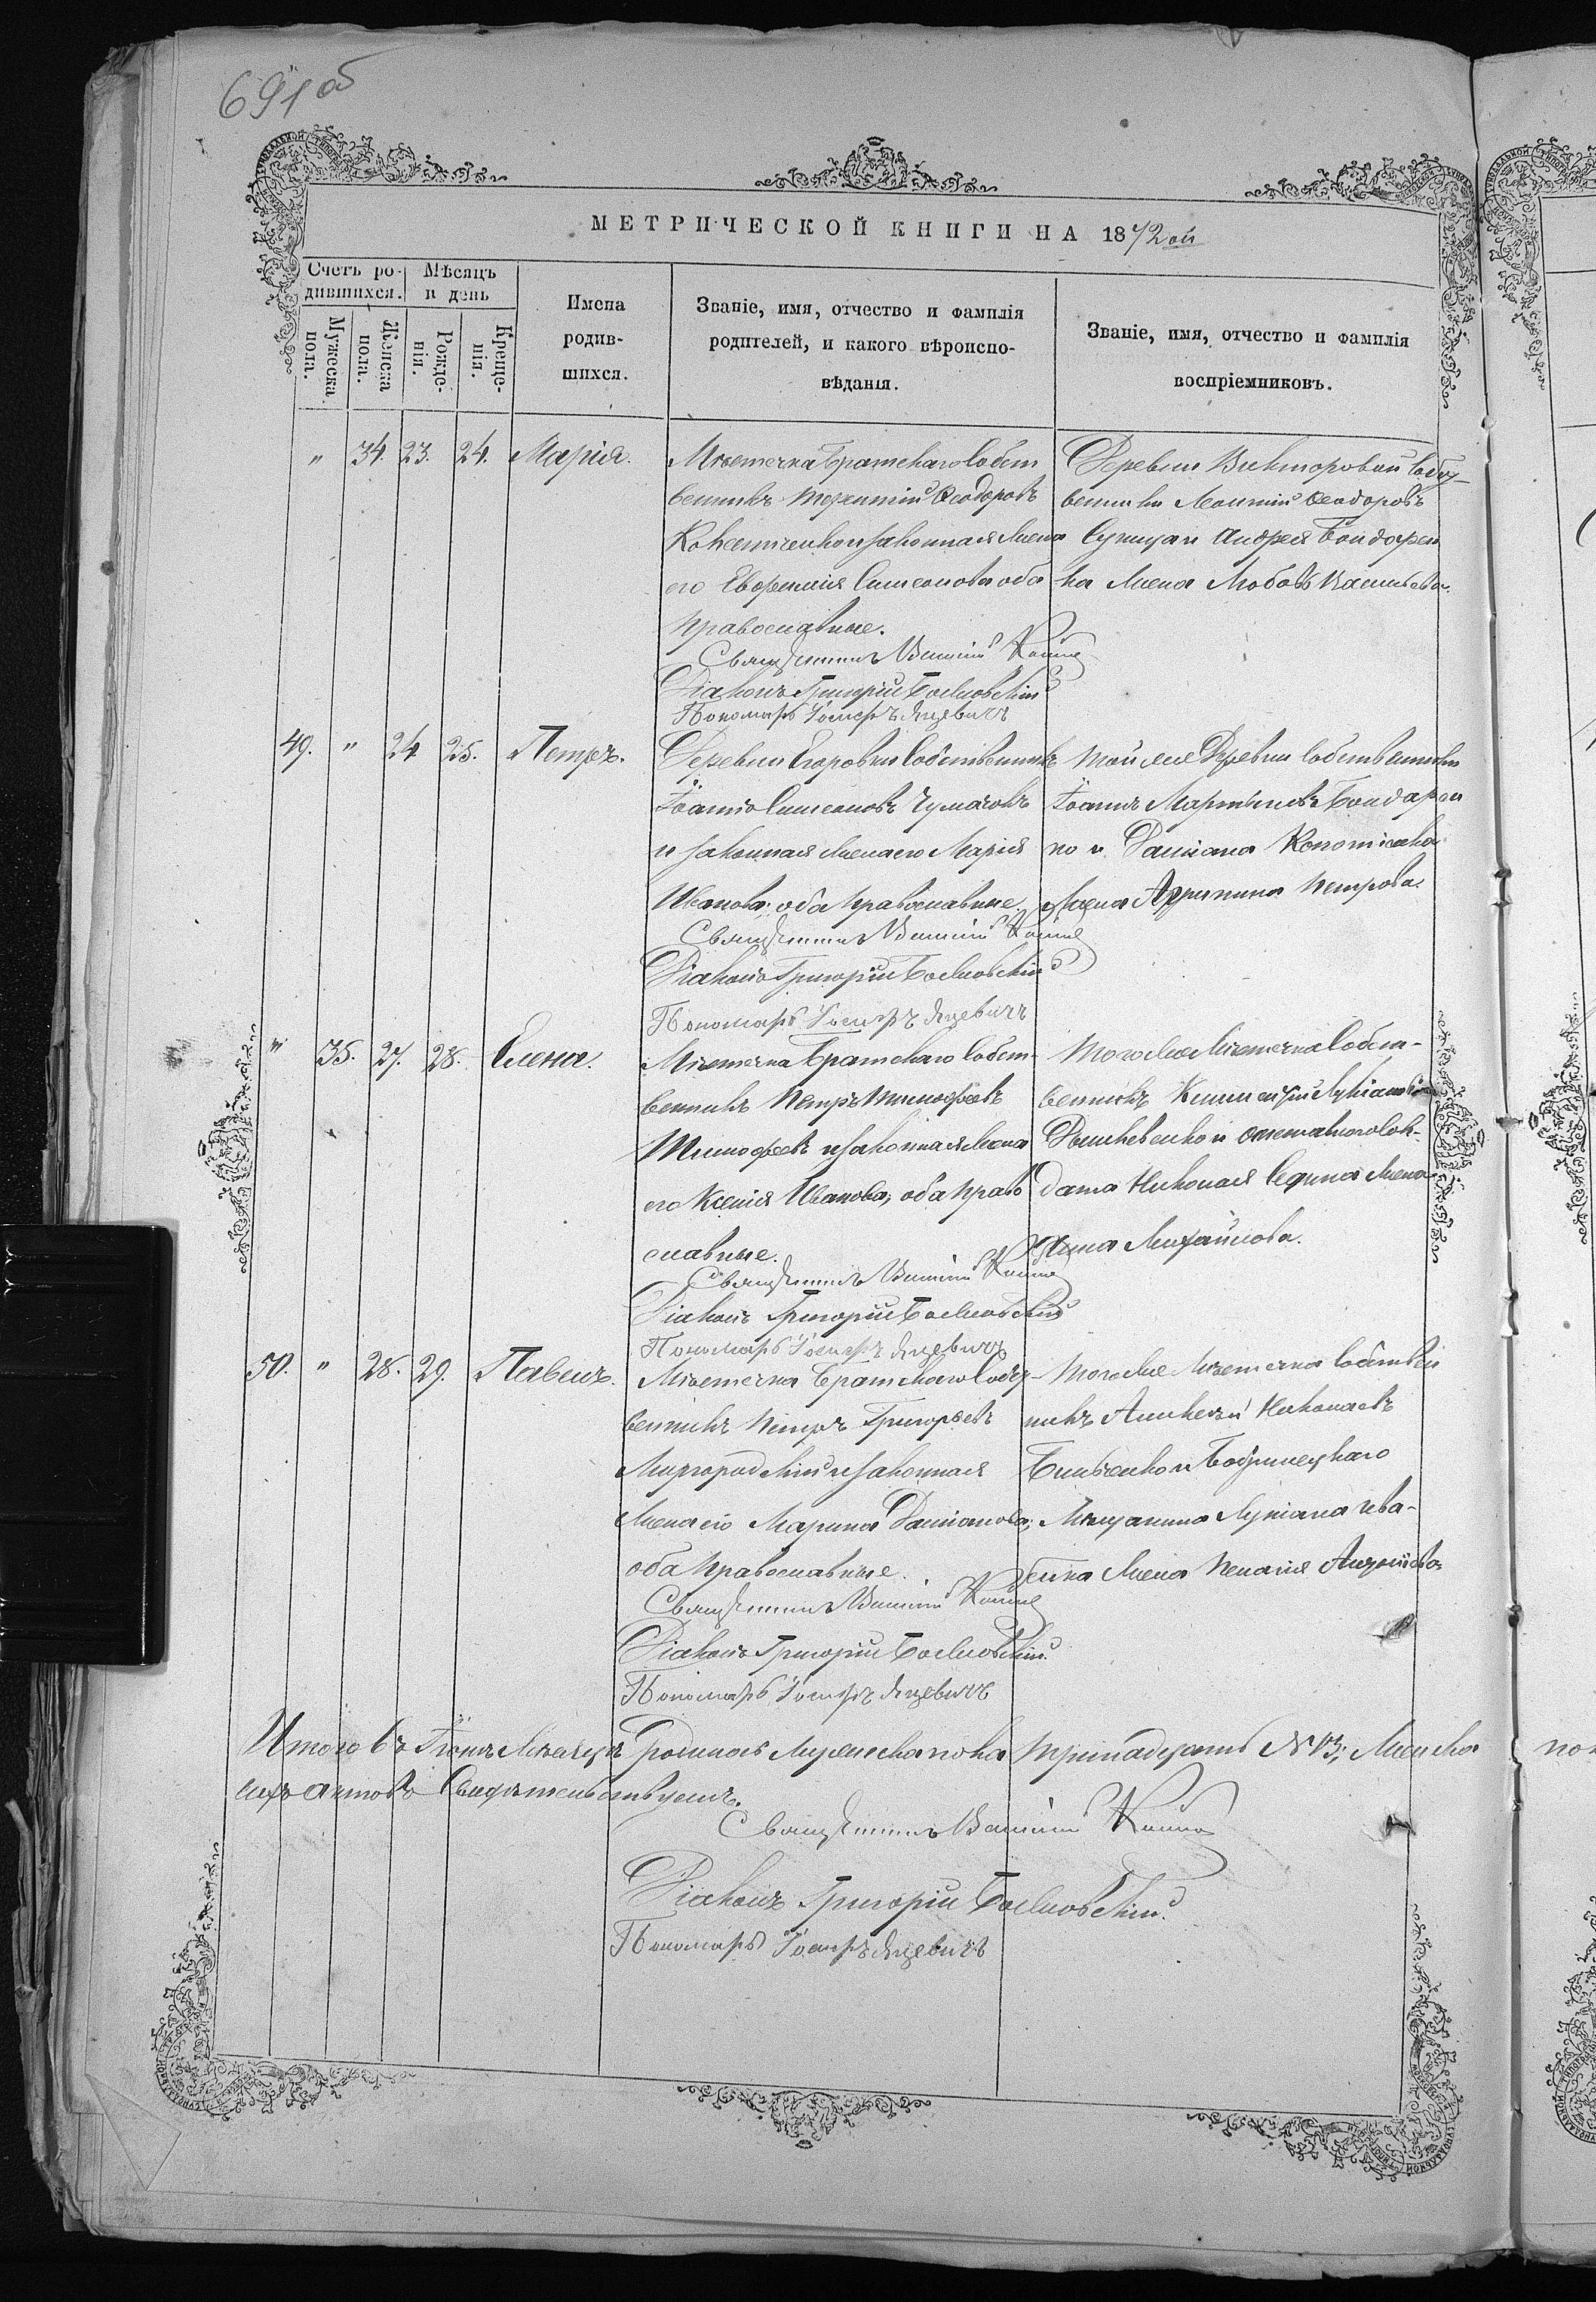 691 об
МЕТРИЧЕСКОЙ КНИГИ НА 1872ой
Счетъ ро-
дившихся.
Мѣсяцъ
и день
Мужеска
пола.
Женска
пола.
Рожде-
нія.
Креще-
нія.
Имена
родив-
шихся.
Званіе, имя, отчество и фамилія
родителей, и какого вѣроиспо-
вѣданія.
Званіе, имя, отчество и фамилія
воспріемниковъ.
" 34. 23. 24. Марія.
Мѣстечка Братскаго собст
венникъ Ѳеодоровъ
и законная жена
его Симеонова оба
православные.
Священникъ Василій
Діаконъ Григорій
Пономарь Іосифъ Яцевичъ
Деревни Викторовки собст-
венникъ Леонтій Ѳеодоровъ
и Андрея Бондарен
ка жена Любовь Васильева.
49. " 24 25. Петръ.
Деревни Егоровки собственникъ
Іоаннъ Симеоновъ Чумаковъ
и законная жена его Марія
Иванова; оба православные.
Священникъ Василій
Діаконъ Григорій
Пономарь Іосифъ Яцевичъ
Той же деревни собственникъ
Іоаннъ Мартыновъ Бондарен
ко и Даміана
жена Агрипина Петрова.
" 35. 27. 28. Елена.
Мѣстечка Братскаго собст-
венникъ Петръ Тимофѣевъ
Тимофѣевъ и законная жена
его Ксенія Иванова, оба право
славные.
Священникъ Василій
Діаконъ Григорій
Пономарь Іосифъ Яцевичъ
Того же Мѣстечка собст-
венникъ Лукіановъ
и отставного сол-
дата Николая жена
Михайлова.
50. " 28. 29. Павелъ.
Мѣстечка Братскаго собст-
венникъ Петръ Григорьевъ
Миргородскій и законная
жена его Марина Даміанова;
оба православные.
Священникъ Василій
Діаконъ Григорій
Пономарь Іосифъ Яцевичъ
Того же Мѣстечка собствен
никъ Алексѣй Николаевъ
и Бобринецкаго
Мѣщанина Лукіана
жена Пелагія
Итого въ Іюнѣ Мѣсяцѣ родилось мужеска пола тринадцать №13; женска
сихъ актовъ свидѣтельствуемъ.
Священникъ Василій
Діаконъ Григорій
Пономарь Іосифъ Яцевичъ